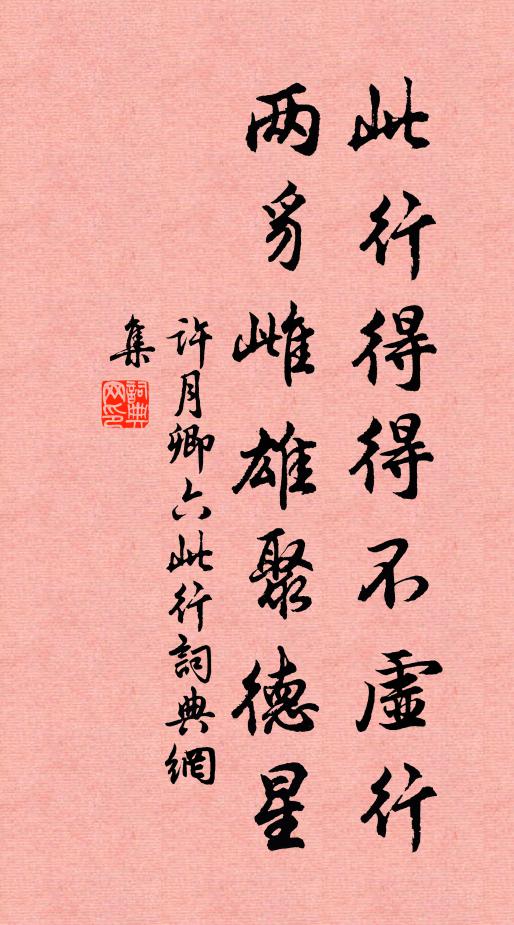 此行得得不虛行
两豸雌雄聚德星
許月卿六此行詞典網
集
詞典
网印